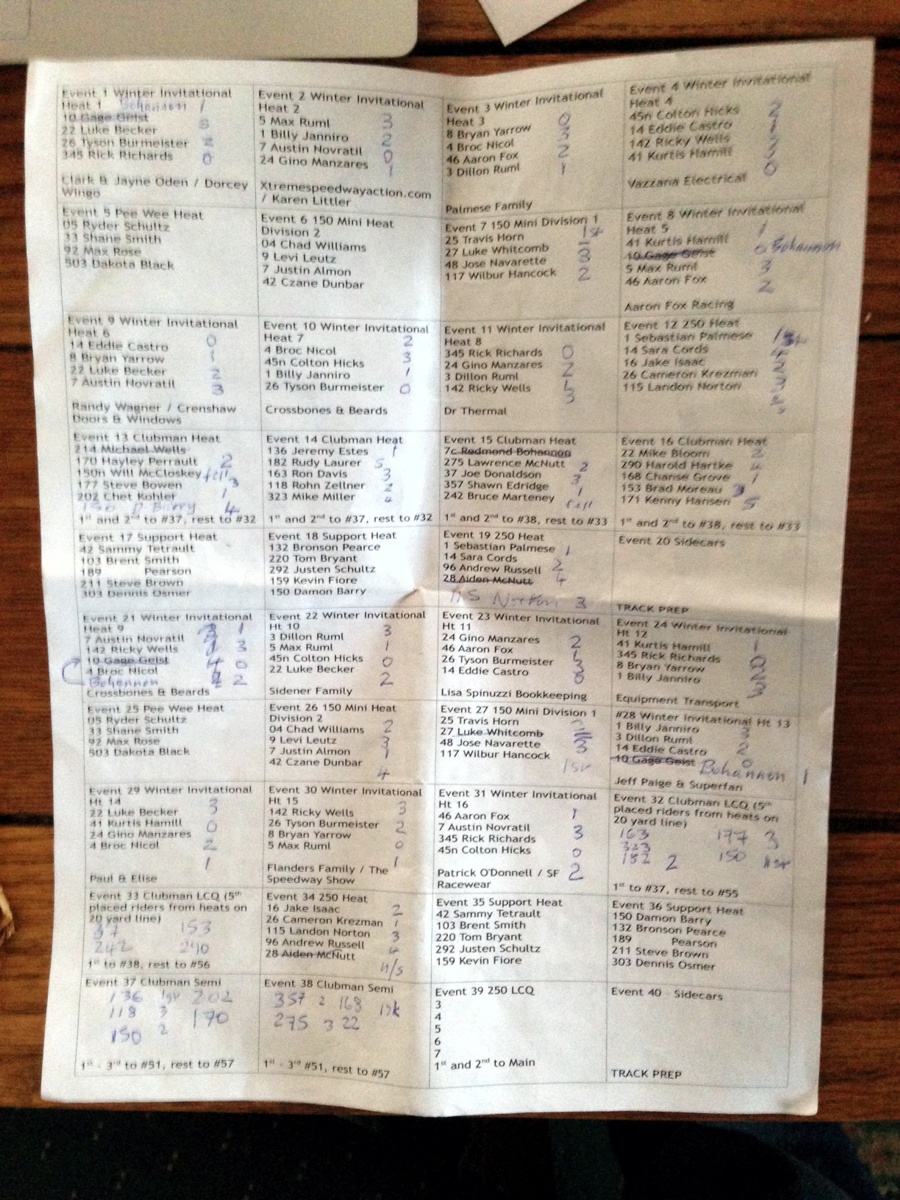 Event 1 Winter Invitational
Heat 1 Bohannon 1
10 Gage Geist
22 Luke Becker
26 Tyson Burmeister 2
345 Rick Richards 0
Clark & Jayne Oden / Dorcey
Wingo
Event 2 Winter Invitational
Heat 2
5 Max Ruml 3
1 Billy Janniro 2
7 Austin Novratil 0
24 Gino Manzares 1
Xtremespeedwayaction.com
/ Karen Littler
Event 3 Winter Invitational
Heat 3
8 Bryan Yarrow 0
4 Broc Nicol 3
46 Aaron Fox 2
3 Dillon Ruml 1
Palmese Family
Event 4 Winter Invitational
Heat 4
45n Colton Hicks 2
14 Eddie Castro 1
142 Ricky Wells 3
41 Kurtis Hamill 0
Vazzana Electrical
Event 5 Pee Wee Heat
05 Ryder Schultz
33 Shane Smith
92 Max Rose
503 Dakota Black
Event 6 150 Mini Heat
Division 2
04 Chad Williams
9 Levi Leutz
7 Justin Almon
42 Czane Dunbar
Event 7 150 Mini Division 1
25 Travis Horn 1st
27 Luke Whitcomb 3
48 Jose Navarette
117 Wilbur Hancock 2
Event 8 Winter Invitational
Heat 5
41 Kurtis Hamill 1
10 Gage Geist 0 Bohannon
5 Max Ruml 3
46 Aaron Fox 2
Aaron Fox Racing
Event 9 Winter Invitational
Heat 6
14 Eddie Castro 0
8 Bryan Yarrow 1
22 Luke Becker 2
7 Austin Novratil 3
Randy Wagner / Crenshaw
Doors & Windows
Event 10 Winter Invitational
Heat 7
4 Broc Nicol 2
45n Colton Hicks 3
1 Billy Janniro 1
26 Tyson Burmeister 0
Crossbones & Beards
Event 11 Winter Invitational
Heat 8
345 Rick Richards 0
24 Gino Manzares 2
3 Dillon Ruml 1
142 Ricky Wells 3
Dr Thermal
Event 12 250 Heat
1 Sebastian Palmese 1st
14 Sara Cords 4
16 Jake Isaac 2
26 Cameron Krezman 3
115 Landon Norton
Event 13 Clubman Heat
214 Michael Wells
170 Hayley Perrault 2
150n Will McCloskey fell
177 Steve Bowen 3
202 Chet Kohler 1
150 D Barry 4
1st and 2nd to #37, rest to #32
Event 14 Clubman Heat
136 Jeremy Estes 1
182 Rudy Laurer 5
163 Ron Davis 3
118 Rohn Zellner 2
323 Mike Miller 4
1st and 2nd to #37, rest to #32
Event 15 Clubman Heat
7c Redmond Bohannon
275 Lawrence McNutt 2
37 Joe Donaldson 3
357 Shawn Edridge 1
242 Bruce Marteney fell
1st and 2nd to #38, rest to #33
Event 16 Clubman Heat
22 Mike Bloom 2
290 Harold Hartke 4
168 Chanse Grove 1
153 Brad Moreau 3
171 Kenny Hansen 5
1st and 2nd to #38, rest to #33
Event 17 Support Heat
42 Sammy Tetrault
103 Brent Smith
189 Pearson
211 Steve Brown
303 Dennis Osmer
Event 18 Support Heat
132 Bronson Pearce
220 Tom Bryant
292 Justen Schultz
159 Kevin Fiore
150 Damon Barry
Event 19 250 Heat
1 Sebastian Palmese 1
14 Sara Cords
96 Andrew Russell 2
28 Aiden McNutt 4
115 Norton 3
Event 20 Sidecars
TRACK PREP
Event 21 Winter Invitational
Heat 9
7 Austin Novratil 1
142 Ricky Wells 3
10 Gage Geist 0
4 Broc Nicol 2
Bohannon
Crossbones & Beards
Event 22 Winter Invitational
Ht 10
3 Dillon Ruml 3
5 Max Ruml 1
45n Colton Hicks 0
22 Luke Becker 2
Sidener Family
Event 23 Winter Invitational
Ht 11
24 Gino Manzares 2
46 Aaron Fox 1
26 Tyson Burmeister 3
14 Eddie Castro
Lisa Spinuzzi Bookkeeping
Event 24 Winter Invitational
Ht 12
41 Kurtis Hamill 1
345 Rick Richards
8 Bryan Yarrow
1 Billy Janniro 3
Equipment Transport
Event 25 Pee Wee Heat
05 Ryder Schultz
33 Shane Smith
92 Max Rose
503 Dakota Black
Event 26 150 Mini Heat
Division 2
04 Chad Williams 2
9 Levi Leutz 3
7 Justin Almon 1
42 Czane Dunbar 4
Event 27 150 Mini Division 1
25 Travis Horn
27 Luke Whitcomb
48 Jose Navarette 3
117 Wilbur Hancock 1st
#28 Winter Invitational Ht 13
1 Billy Janniro 3
3 Dillon Ruml 2
14 Eddie Castro 0
10 Gage Geist Bohannon 1
Jeff Paige & Superfan
Event 29 Winter Invitational
Ht 14
22 Luke Becker 3
41 Kurtis Hamill 0
24 Gino Manzares 2
4 Broc Nicol 1
Paul & Elise
Event 30 Winter Invitational
Ht 15
142 Ricky Wells 3
26 Tyson Burmeister 2
8 Bryan Yarrow 0
5 Max Ruml 1
Flanders Family / The
Speedway Show
Event 31 Winter Invitational
Ht 16
46 Aaron Fox 1
7 Austin Novratil 3
345 Rick Richards 0
45n Colton Hicks 2
Patrick O'Donnell / SF
Racewear
Event 32 Clubman LCQ (5th
placed riders from heats on
20 yard line)
163 177 3
323
182 2 150 1st
1st to #37, rest to #55
Event 33 Clubman LCQ (5th
placed riders from heats on
20 yard line)
37 153
242 290
1st to #38, rest to #56
Event 34 250 Heat
16 Jake Isaac 2
26 Cameron Krezman 1
115 Landon Norton 3
96 Andrew Russell 4
28 Aiden McNutt n/s
Event 35 Support Heat
42 Sammy Tetrault
103 Brent Smith
220 Tom Bryant
292 Justen Schultz
159 Kevin Fiore
Event 36 Support Heat
150 Damon Barry
132 Bronson Pearce
189 Pearson
211 Steve Brown
303 Dennis Osmer
Event 37 Clubman Semi
136 1st 202
118 3 170
150 2
1st - 3rd to #51, rest to #57
Event 38 Clubman Semi
357 2 168 1st
275 3 22
1st - 3rd #51, rest to #57
Event 39 250 LCQ
3
4
5
6
7
1st and 2nd to Main
Event 40 - Sidecars
TRACK PREP